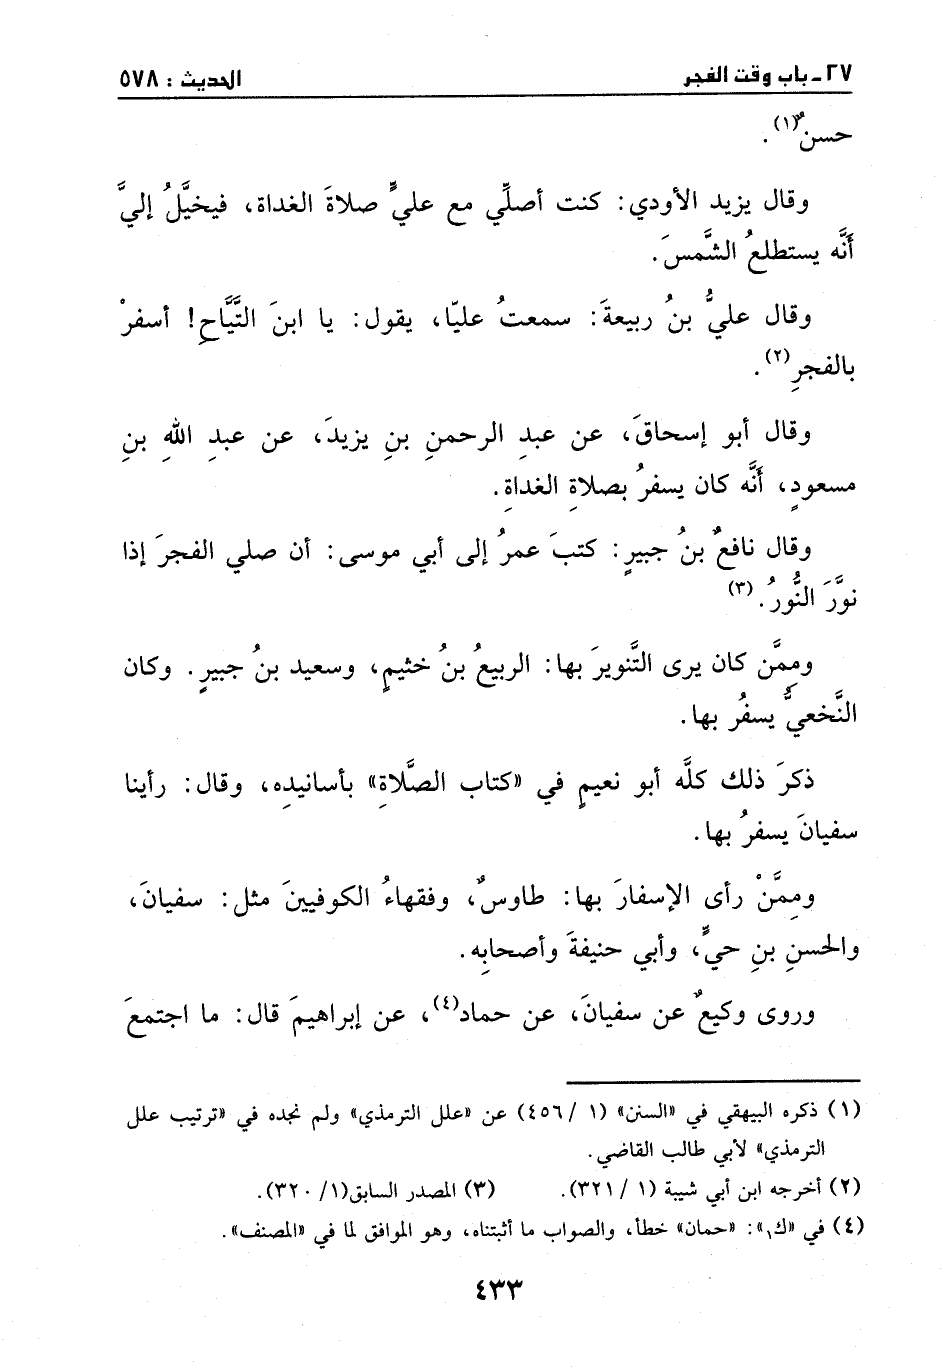 ٢٧ـ باب وقت الفجر
الحديث : ٥٧٨
حسنٌ(١) .
وقال يزيد الأودي: كنت أصلِّي مع عليٍّ صلاةَ الغداة، فيخيَّلُ إليَّ
أنَّه يستطلعُ الشَّمسَ.
وقال عليُّ بنُ ربيعةَ: سمعتُ عليّا، يقول: يا ابنَ التَّيَّاحِ! أسفرْ
بالفجرِ(٢).
وقال أبو إسحاقَ، عن عبدِ الرحمنِ بنِ يزيدَ، عن عبدِ اللهِ بنِ
مسعودٍ، أنَّه كان يسفرُ بصلاةِ الغداةِ.
وقال نافعٌ بنُ جبيرٍ: كتبَ عمرُ إلى أبي موسى: أن صلي الفجرَ إذا
نوَّرَ النُّورُ.(٣)
وممَّن كان يرى التَّنويرَ بها: الربيعُ بنُ خثيمٍ، وسعيد بنُ جبيرٍ. وكان
النَّخعيُّ يسفرُ بها.
ذكرَ ذلك كلَّه أبو نعيمٍ في «كتاب الصَّلاةِ» بأسانيدِه، وقال: رأينا
سفيانَ يسفرُ بها.
وممَّنْ رأى الإسفارَ بها: طاوسٌ، وفقهاءُ الكوفيينَ مثل: سفيانَ،
والحسنِ بنِ حيٍّ، وأبي حنيفةَ وأصحابِه.
وروى وكيعٌ عن سفيانَ، عن حماد(٤)، عن إبراهيمَ قال: ما اجتمعَ
(١) ذكره البيهقي في «السنن» (١ /٤٥٦) عن «علل الترمذي» ولم نجده في «ترتيب علل
الترمذي» لأبي طالب القاضي.
(٢) أخرجه ابن أبي شيبة (١ /٣٢١). (٣) المصدر السابق(١/ ٣٢٠).
(٤) في «ك١»: «حمان» خطأ، والصواب ما أثبتناه، وهو الموافق لما في «المصنف».
٤٣٣